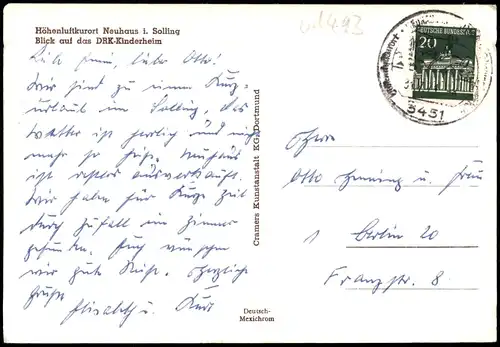 Höhenluftkurort Neuhaus i. Solling
Blick auf das DRK-Kinderheim
liebe Otto!
Wir sind zu einem Kurz-
urlaub im Solling, das
Wetter ist herrlich und nicht
mehr so heiß. Neuhaus
ist restlos ausverkauft.
Wir haben für kurze Zeit
durch Zufall ein Zimmer
gefunden. Euch wünschen
wir gute Reise. Herzliche
Grüße
Elisabeth u. Kurt
Cramers Kunstanstalt KG, Dortmund
Deutsch-
Mexichrom
DEUTSCHE BUNDESPOST
20
3451
Herrn
Otto Henning u. Frau
1 Berlin 20
Franzstr. 8